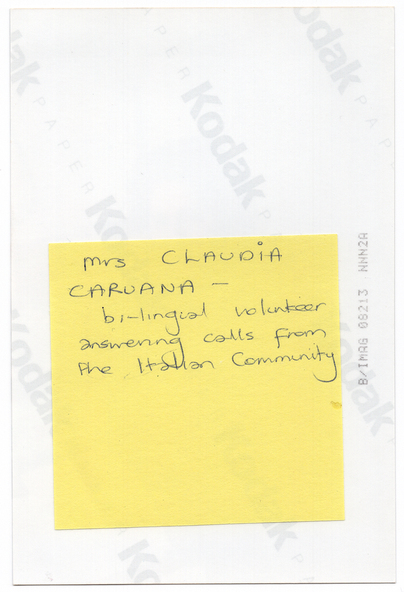 Mrs CLAUDIA
CARUANA –
bi-lingual volunteer
answering calls from
the Italian Community
B/IMAG 08213 NNN2A
Kodak
PAPER
Kodak
PAPER
Kodak
PAPER
Kodak
Kodak
Kodak
Kodak
Kodak